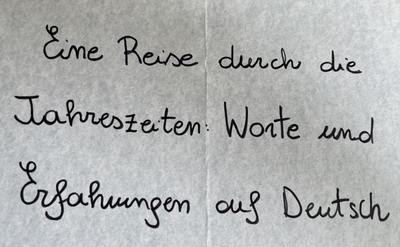 Eine Reise durch die
Jahreszeiten: Worte und
Erfahrungen auf Deutsch